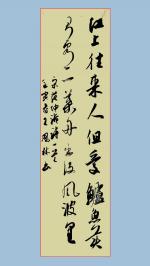 江上往来人但愛鱸魚美
君看一葉舟出没風波里
宋范仲淹詩一首